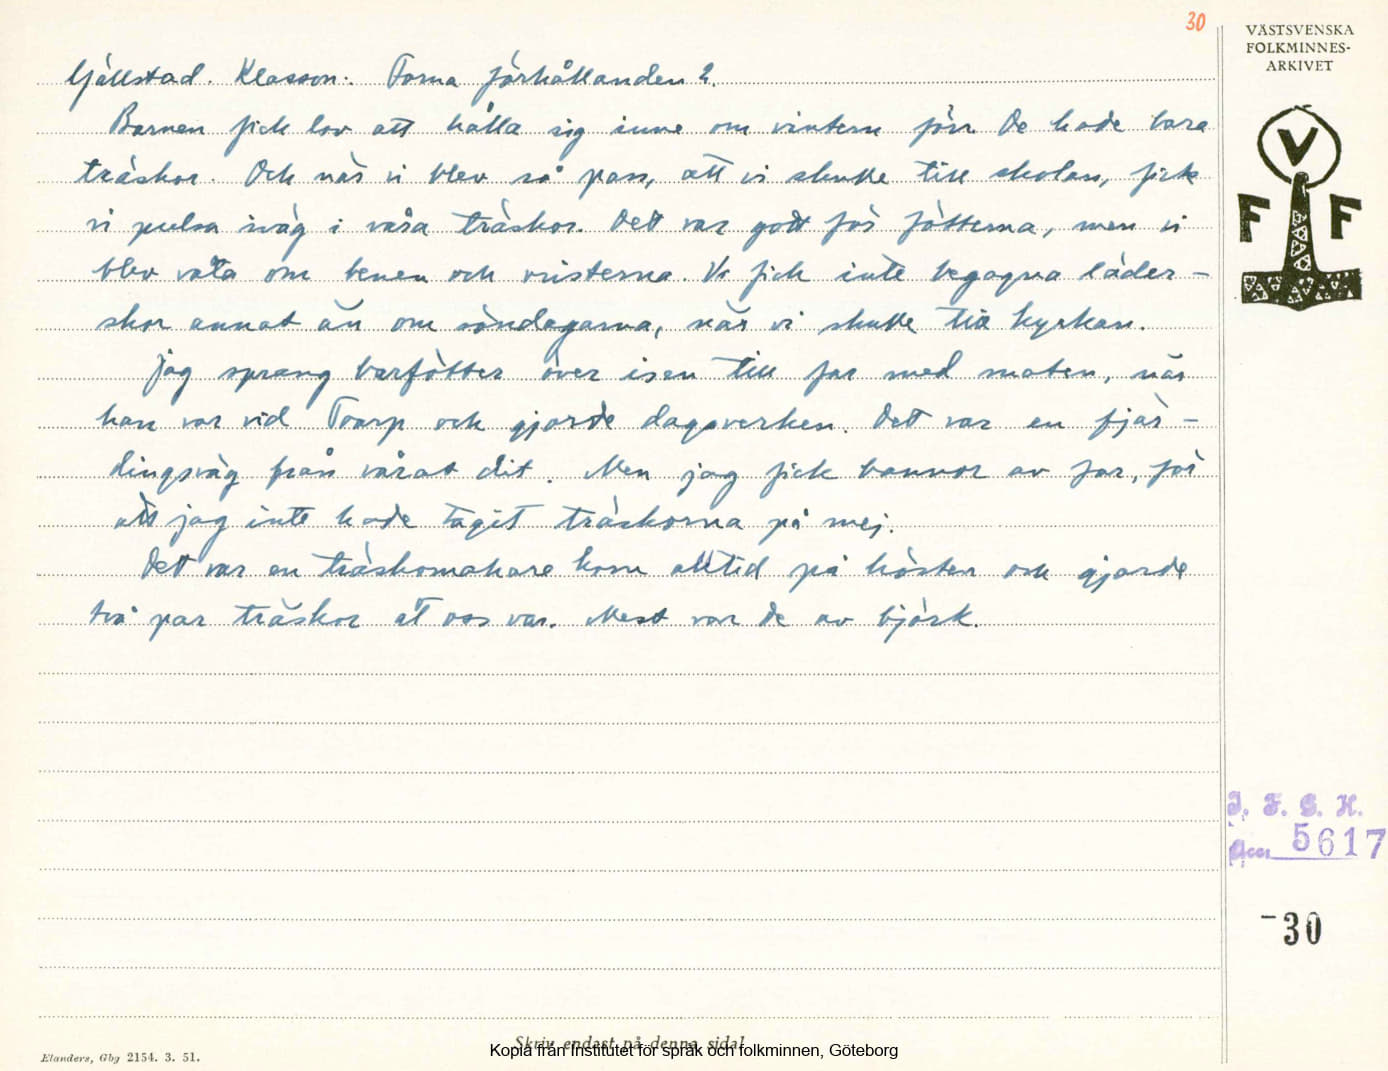 30
VÄSTSVENSKA
FOLKMINNES-
ARKIVET
V
F F
Gällstad. Klasson: Forna förhållanden 2.
Barnen fick lov att hålla sig inne om vintern förr. De hade bara
träskor. Och när vi blev så pass, att vi skulle till skolan, fick
vi pulsa iväg i våra träskor. Det var gott för fötterna, men vi
blev våta om benen och vristerna. Vi fick inte begagna läder-
skor annat än om söndagarna, när vi skulle till kyrkan.
Jag sprang barfötter över isen till far med maten, när
han var vid Torp och gjorde dagsverken. Det var en fjär-
dingsväg från vårat dit. Men jag fick bannor av far, för
att jag inte hade tagit träskorna på mej.
Det var en träskomakare kom alltid på hösten och gjorde
två par träskor åt oss var. Mest var de av björk.
I. F. G. H.
5617
-30
Skriv endast på denna sida!
Kopia från Institutet för språk och folkminnen, Göteborg
Elanders, Gbg 2154. 3. 51.